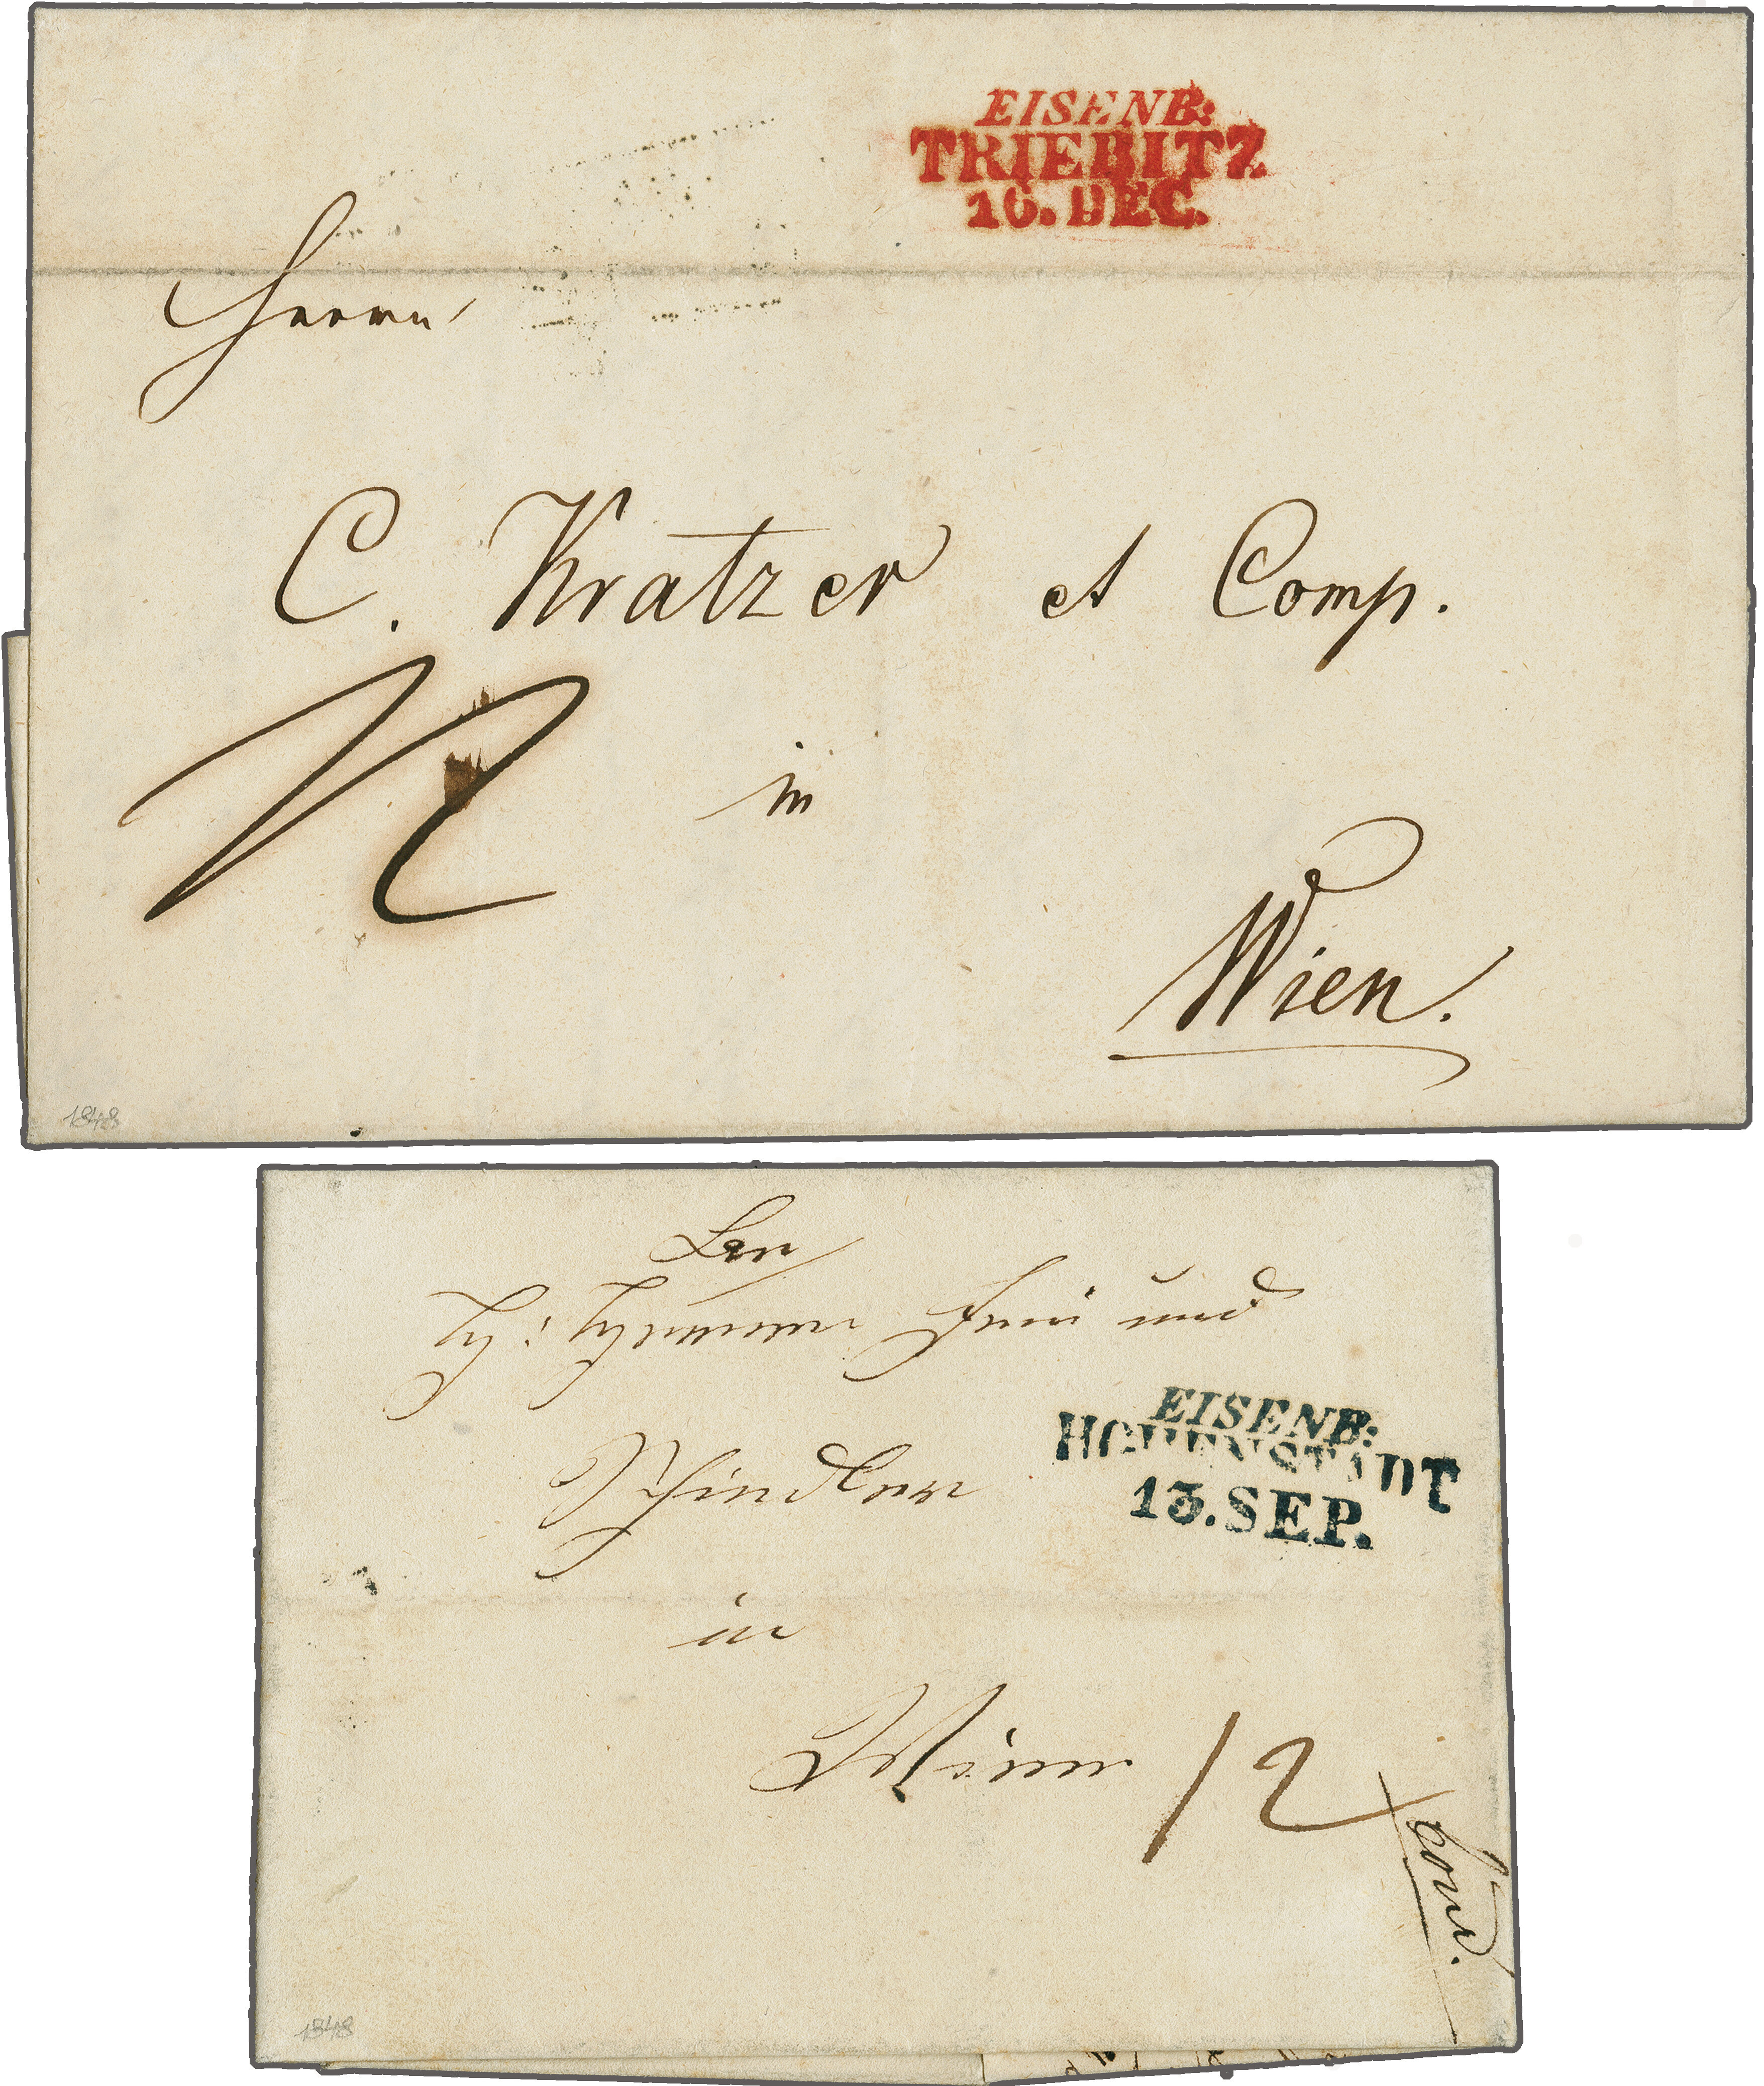 EISENB:
TRIEBITZ
16. DEC.
Herrn
C. Kratzer et Comp.
12
in
Wien.
1848
und
EISENB:
HOHENSTADT
13. SEP.
Schindler
in
Wien
12
1848